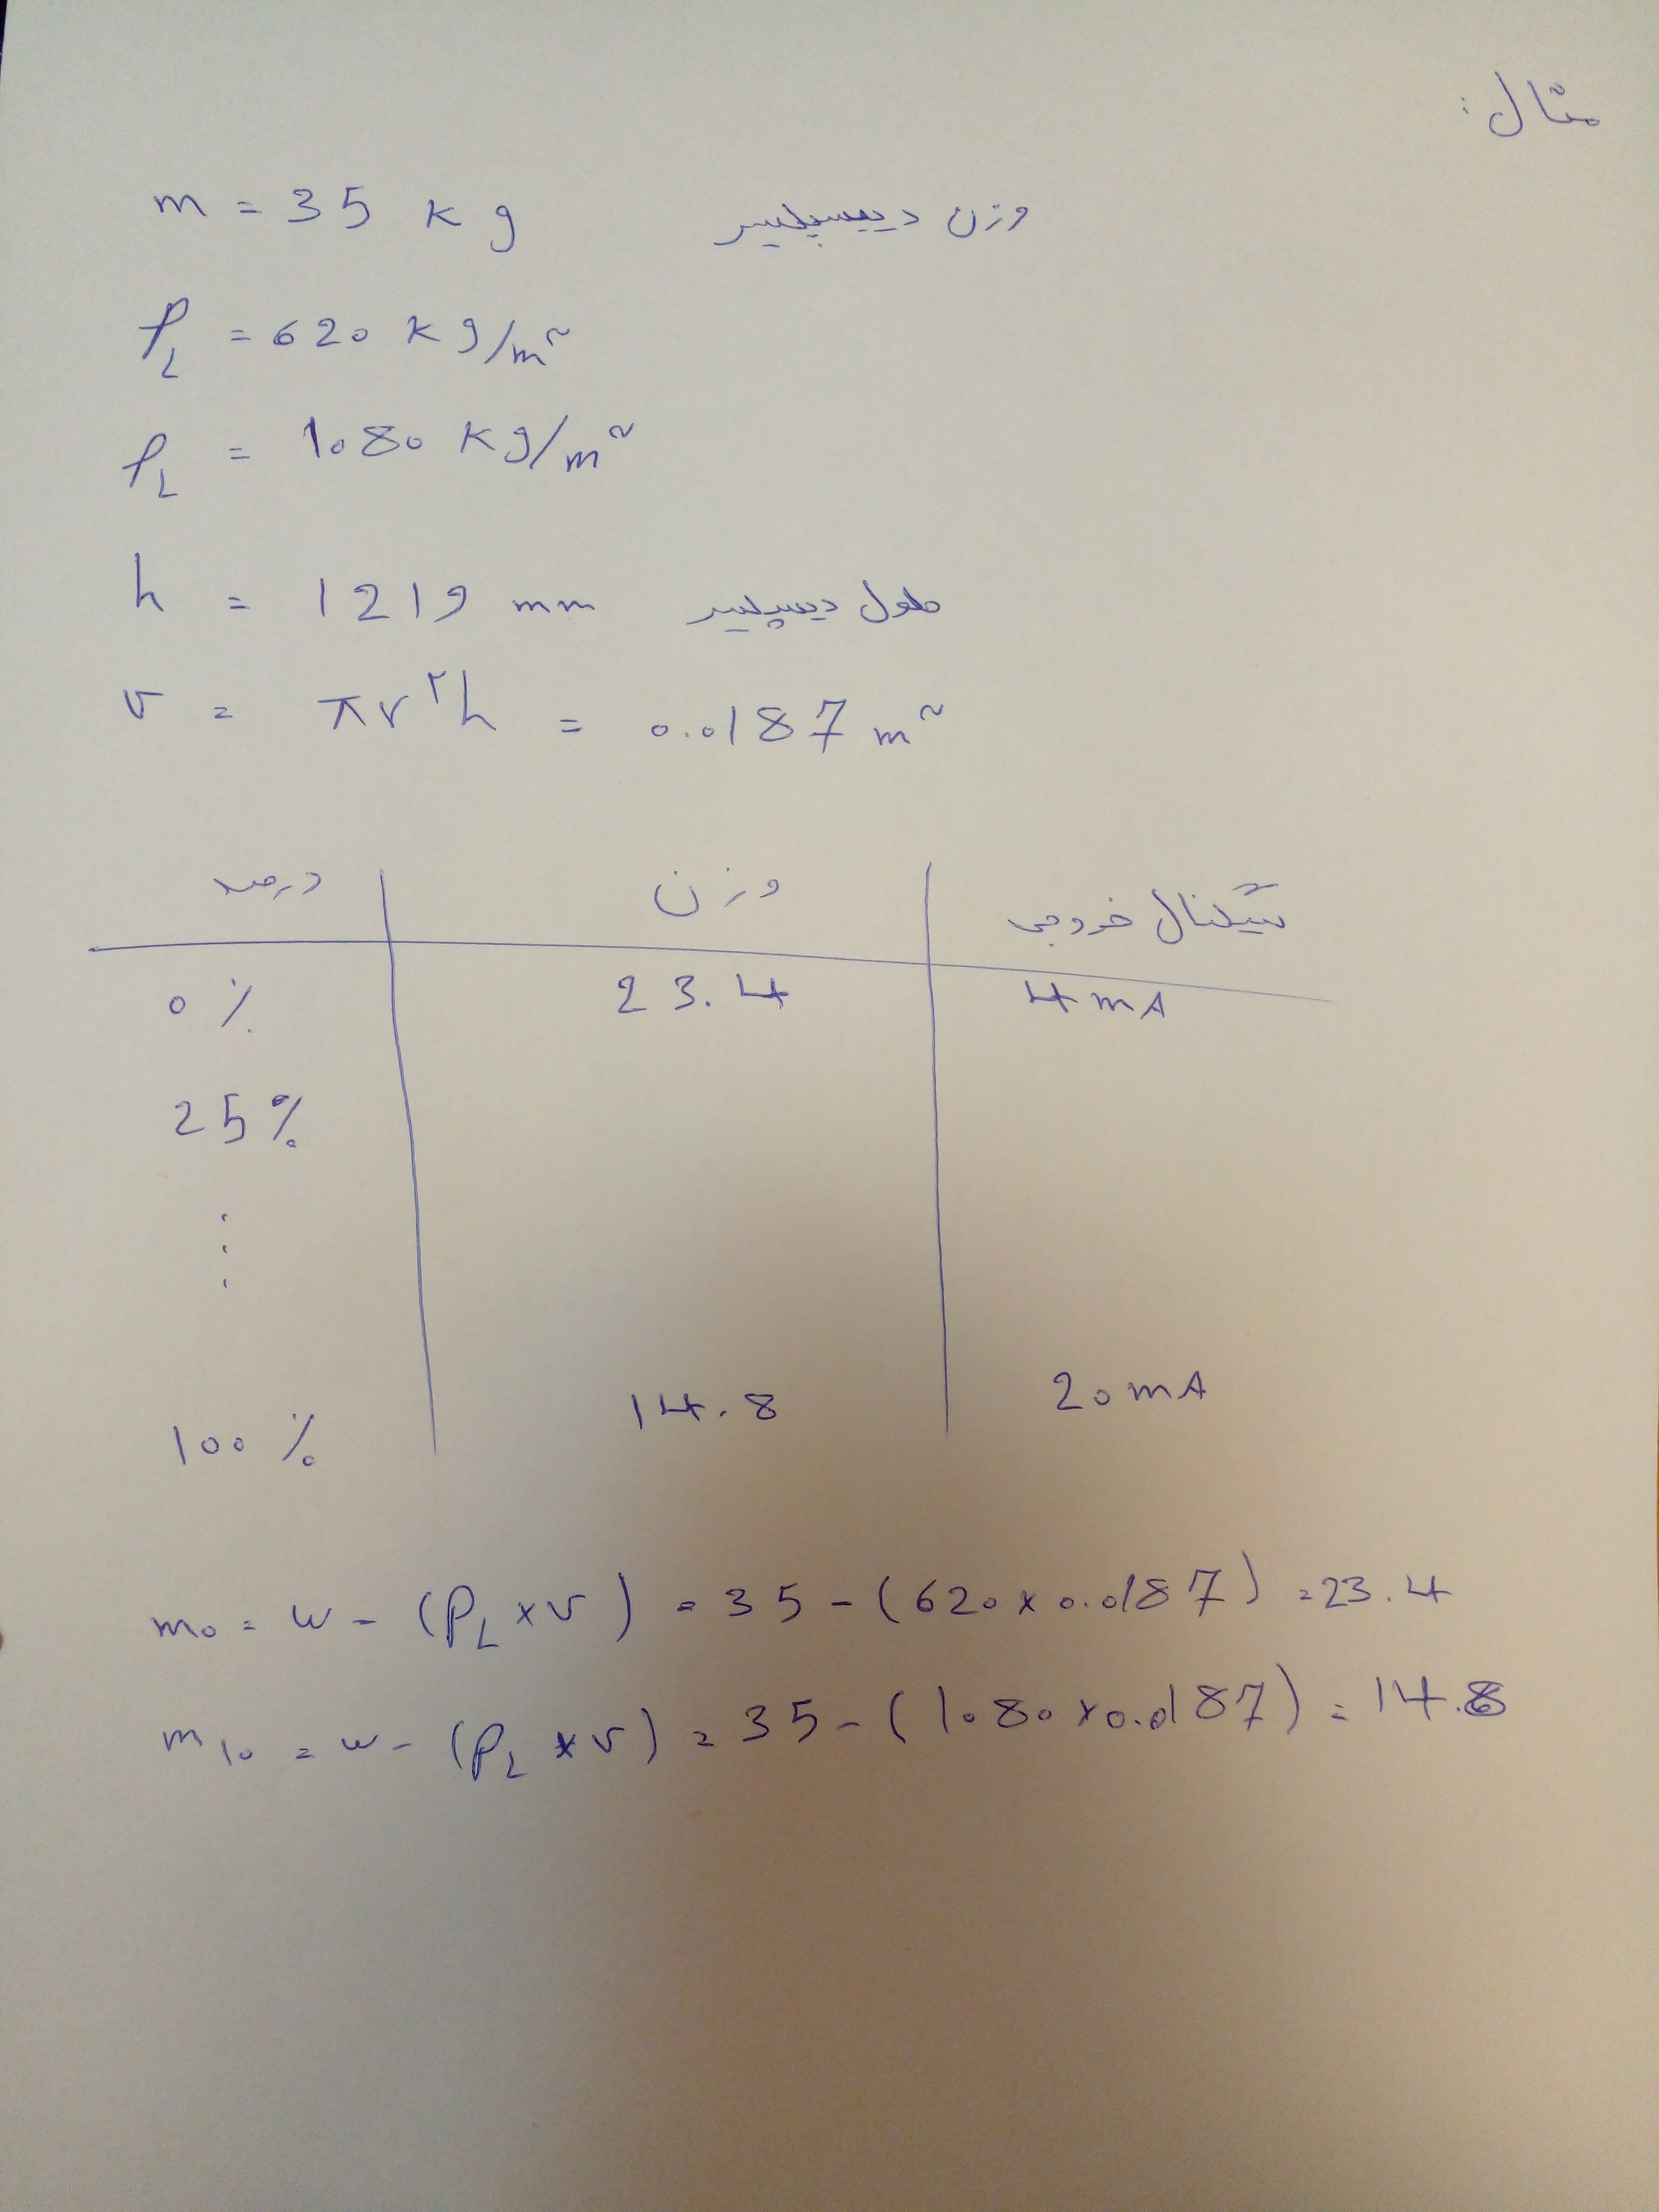 مثال:
m = 35 kg وزن دیسپلیسر
ρL = 620 kg/m³
ρL = 1080 kg/m³
h = 1219 mm طول دیسپلیسر
v = πr²h = 0.0187 m³
درصد وزن سیگنال خروجی
0% 23.4 4 mA
25%
⋮
100% 14.8 20 mA
m0 = w - (ρL × v) = 35 - (620 × 0.0187) = 23.4
m10 = w - (ρL × v) = 35 - (1080 × 0.0187) = 14.8